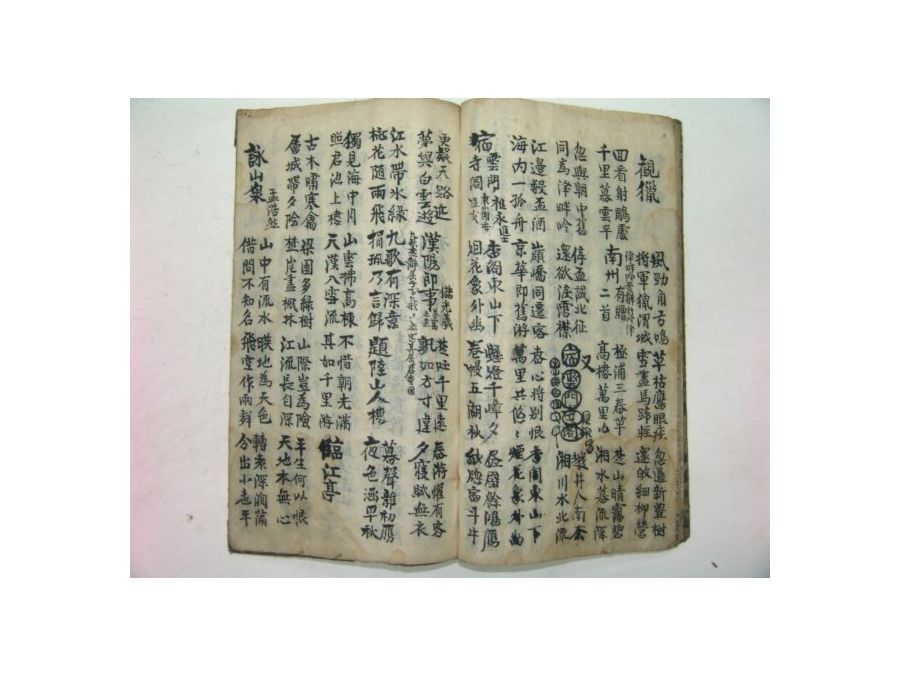 觀獵 風勁角弓鳴 草枯鷹眼疾 忽過新豐樹
將軍獵渭城 雪盡馬蹄輕 還歸細柳營
回看射鵰處 極浦三春草 楚山晴靄碧
千里暮雲平 南州有贈二首 高樓萬里心 湘水暮流深
忽與朝中舊 停盃試北征 又 越井人南去
同爲澤畔吟 還欲淚霑襟 宿雲門寺閣 湘川水北流
江邊數盃酒 嶺嶠同遷客 心將別恨 香閣東山下
海內一孤舟 京華即舊游 萬里共悠悠 煙花象外幽
宿雲門寺閣 香閣東山下 懸燈千嶂夕 畫壁餘鴻鴈
烟花象外幽 卷幔五湖秋 紗窓宿斗牛
更疑天路近 漢陽即事 儲光羲 楚國千里遠 春游歡有客
夢與白雲遊 孰知方寸違 夕寢賦無衣
江水帶冰綠 九歌有深意 題陸山人樓 暮聲雜初鴈
桃花隨雨飛 捐珮乃言歸 夜色涵早秋
獨見海中月 山雲拂高棟 不惜朝光滿 臨江亭
照君池上樓 天漢入雲流 其如千里游
古木嘯寒禽 梁園多綠樹 山際豈爲險 平生何以恨
層城帶夕陰 楚崖盡楓林 江流長自深 天地本無心
詠山泉 孟浩然 山中有流水 暎地為天色 轉來深澗滿
借問不知名 飛空作雨聲 今出小池平